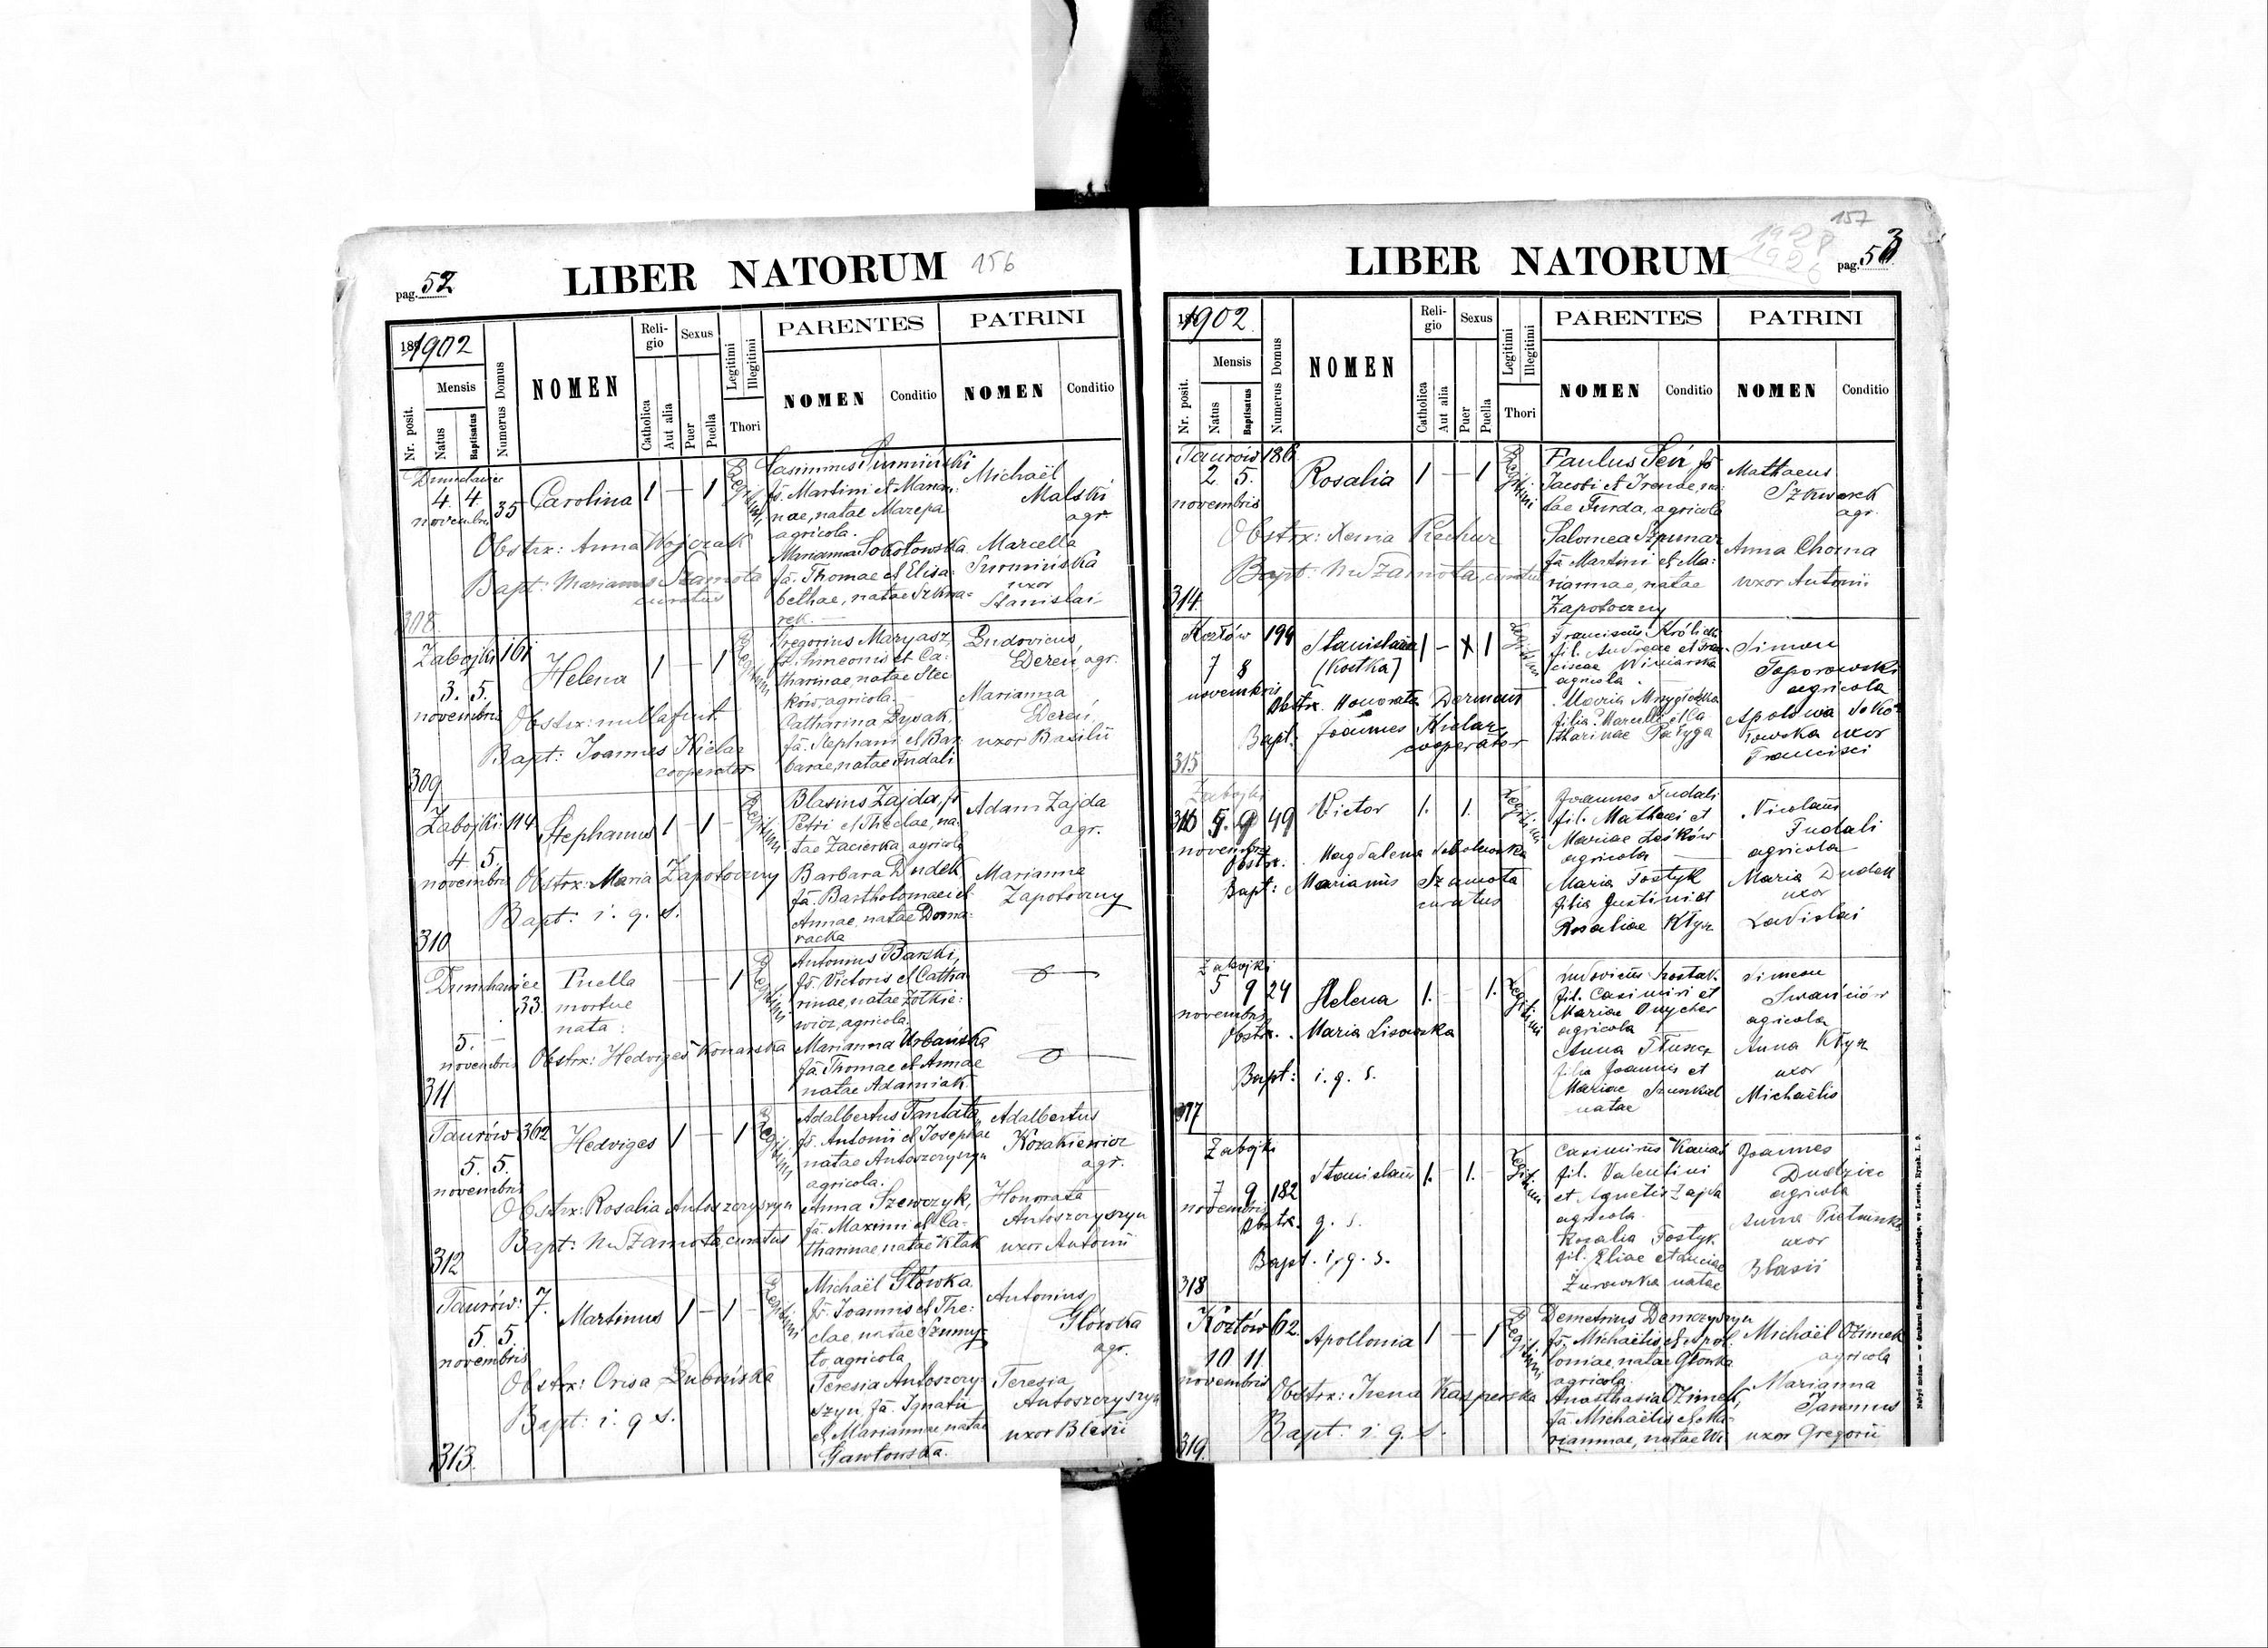 pag. 52
LIBER NATORUM
156
1902
Nr. posit.
Mensis
Natus
Baptisatus
Numerus Domus
NOMEN
Religio
Catholica
Aut alia
Sexus
Puer
Puella
Legitimi
Illegitimi
Thori
PARENTES
NOMEN
Conditio
PATRINI
NOMEN
Conditio
308
4. 4
novembris
35
Carolina
1 — 1
Legitimi
fs. Martini et Marian-
nae, natae Mazepa
agricola.
Marianna Sokołowska
fa. Thomae et Elisa-
bethae, natae Szkwa-
rek.
Michaël
Malski
agr.
Marcella
Surmińska
uxor
Stanislai
Obstrx: Anna Wojczak
Bapt: Marianus Szamota
curatus
309
Zabojki 161
3. 5.
novembris
Helena
1 — 1
Legitimi
Gregorius Maryasz,
fs. Simeonis et Ca-
tharinae, natae Stec
ków, agricola.
Catharina Dysak,
fa. Stephani et Bar
barae, natae Fudali
Ludovicus
Dereń, agr.
Marianna
Dereń,
uxor Basilii
Obstrx: nulla fuit
Bapt: Joannes Kielar
cooperator
310
Zabojki 114
4 5.
novembris
Stephanus
1 — 1 —
Legitimi
Blasius Zajda, fs
Petri et Theclae, na-
tae Zacierka, agricola
Barbara Dudek
fa. Bartholomaei et
Annae, natae Doma-
racka
Adam Zajda
agr.
Marianna
Zapotoczny
Obstrx: Maria Zapotoczny
Bapt: i. q. s.
311
33
5. —
novembris
Puella
mortue
nata
— 1
Legitimi
Antonius Barski,
fs. Victoris et Catha
rinae, natae Żółkie-
wicz, agricola.
Marianna Urbańska
fa. Thomae et Annae
natae Adamiak.
Obstrx: Hedviges Konarska
312
Taurów 362
5. 5.
novembris
Hedviges
1 — 1
Legitimi
Adalbertus Tantała,
fs. Antonii et Josephae
natae Antoszczyszyn
agricola.
Anna Szewczyk,
fa. Maximi et Ca-
tharinae natae Kłak
Adalbertus
Kozakiewicz
agr.
Honorata
Antoszczyszyn
uxor Antonii
Obstrx: Rosalia Antoszczyszyn
Bapt: M Szamota, curatus
313.
Taurów: 7.
5. 5.
novembris
Martinus
1 — 1 —
Legitimi
Michaël Główka
fs. Joannis et The-
clae, natae Szumy-
ło agricola
Teresia Antoszczy-
szyn, fa. Ignatii
et Mariannae, natae
Gawłowska.
Antonius
Główka
agr.
Teresia
Antoszczyszyn
uxor Blasii
Obstrx: Orisa Dubińska
Bapt: i. q s.
157
pag. 53
LIBER NATORUM
1902
Nr. posit.
Mensis
Natus
Baptisatus
Numerus Domus
NOMEN
Religio
Catholica
Aut alia
Sexus
Puer
Puella
Legitimi
Illegitimi
Thori
PARENTES
NOMEN
Conditio
PATRINI
NOMEN
Conditio
314
Taurów 186
2. 5.
novembris
Rosalia
1 — 1
Legitimi
Paulus Seń, fs
Jacobi et Irenae, na-
tae Furda, agricola
Salomea Szpunar
fa Martini et Ma-
riannae, natae
Zapotoczny
Mathaeus
Szkwarek
agr.
Anna Choma
uxor Antonii
Bapt: M Szamota, curatus
315
Kozłów 194
7 8
novembris
(Kostka)
1 — x 1
Legitimi
Franciscus Królicki
fil. Andreae et Fran-
ciscae Winiarska
agricola.
Maria
filia Marcelli et Ca
tharinae Pałyga
Simon
Toporowski
agricola
Apolonia Soko-
łowska uxor
Francisci
Obstrx. Honorata Dermań
Bapt. Joannes Kielar
cooperator
316
Zabojki
5. 9 49
novembris
Victor
1. 1.
Legitimi
Joannes Fudali
fil. Mathaei et
Mariae Leśków
agricola
Maria Tostyk
filia Justini et
Rosaliae Kłyn
Nicolaus
Fudali
agricola
Maria Dudek
uxor
Ladislai
Obstrx. Magdalena Sobolewska
Bapt: Marianus Szamota
curatus
317
Zabojki
5 9 24
novembris
Helena
1. 1.
Legitimi
fil. Casimiri et
Mariae Onycher
agricola
Anna
filia Joannis et
Mariae
natae
Simeon
Iwańców
agricola
Anna Kłyn
uxor
Michaëlis
Obstrx. Maria Lisowska
Bapt: i. q. s.
318
Zabojki
7 9 182
novembris
Stanislaus
1. 1.
Legitimi
Casimirus Kanas
fil. Valentini
et Agnetis Zajda
agricola
Rosalia Tostyk
fil. Eliae et Luciae
Żurowska natae
Joannes
Dudziec
agricola
Anna
uxor
Blasii
Obstx. q. s.
Bapt. i. q. s.
319
Kozłów 62.
10 11.
novembris
Apollonia
1 — 1
Legitimi
Demetrius Demczyszyn
fs. Michaëlis et Apol-
loniae, natae Główka
agricola.
Anasthasia Ozimek,
fa. Michaëlis et Ma-
riannae, natae Wi
Michaël Ozimek
agricola
Marianna
Taramus
uxor Gregorii
Obstrx: Irena Kasperska
Bapt: i. q. s.